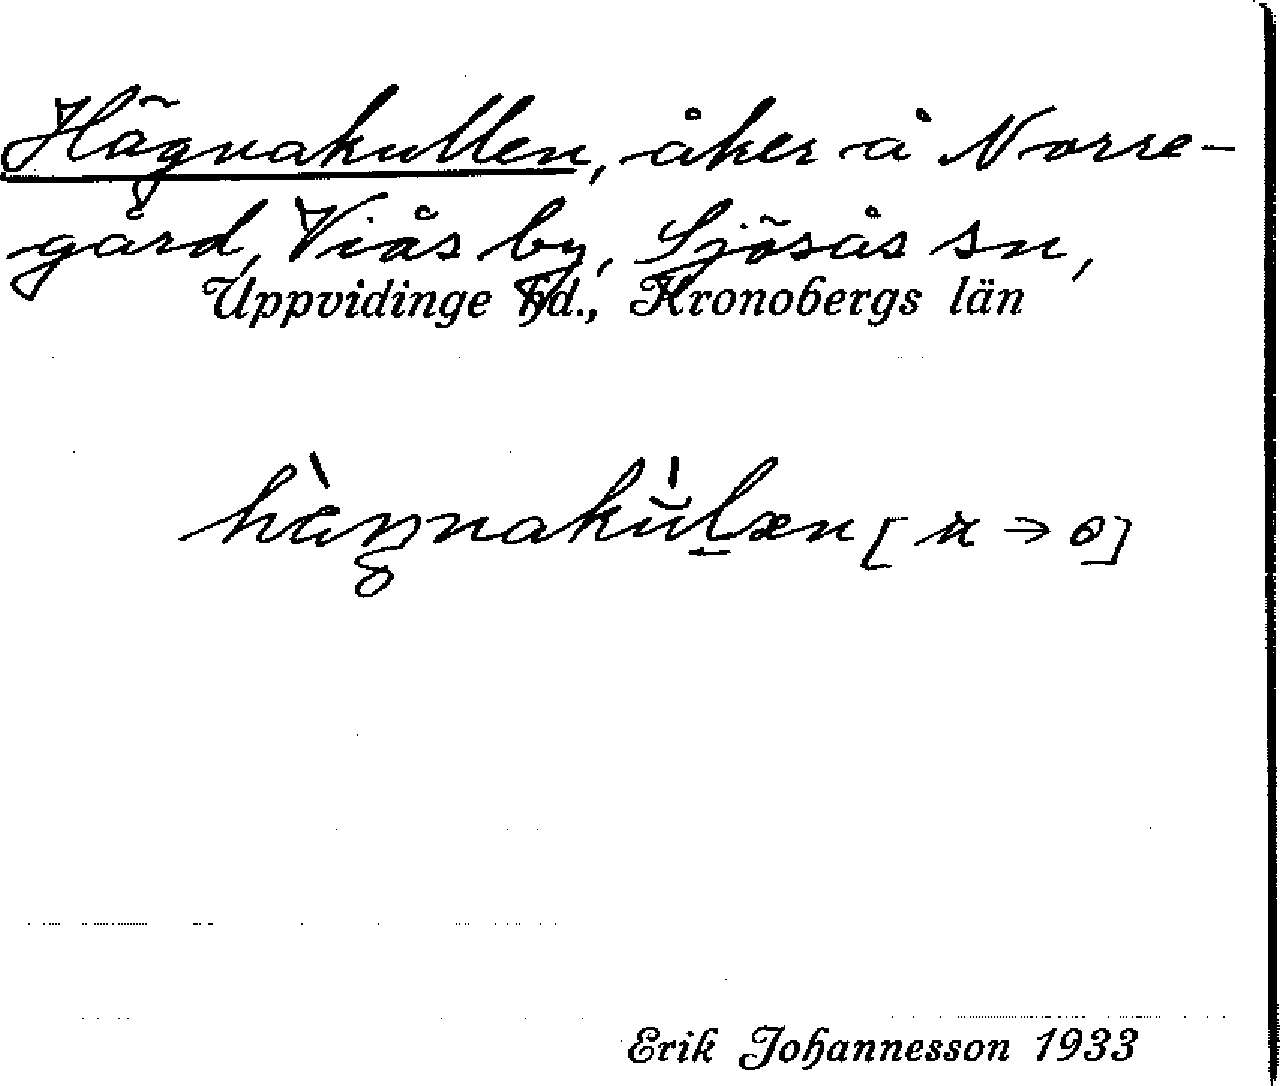 Hägnakullen, åker å Norre-
gård, Viås by, Sjösås sn,
Uppvidinge hd., Kronobergs län
Erik Johannesson 1933